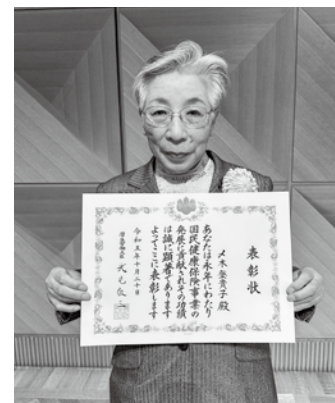 表彰状
〆木登貴子殿
あなたは永年にわたり
国民健康保険事業の
発展に貢献されその功績
は誠に顕著であります
よってここに表彰します
令和五年十月二十日
厚生労働大臣